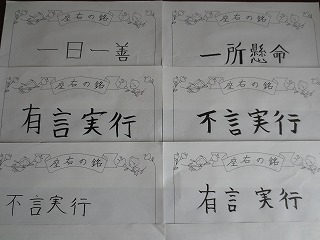 座右の銘
一日一善
座右の銘
一所懸命
座右の銘
有言実行
座右の銘
不言実行
座右の銘
不言実行
座右の銘
有言実行